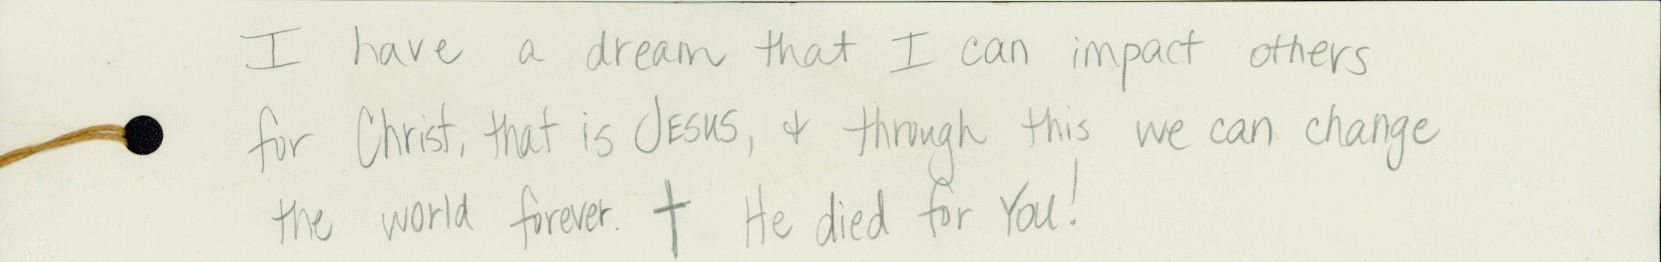 I have a dream that I can impact others
for Christ, that is JESUS, & through this we can change
the world forever. † He died for You!